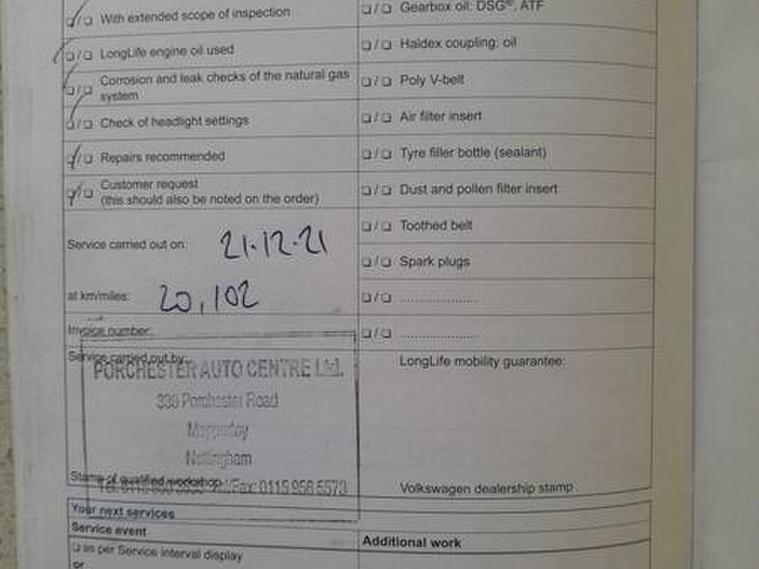 ☐/☐ With extended scope of inspection
☐/☐ LongLife engine oil used
☐/☐ Corrosion and leak checks of the natural gas
system
☐/☐ Check of headlight settings
☐/☐ Repairs recommended
☐/☐ Customer request
(this should also be noted on the order)
Service carried out on: 21.12.21
at km/miles: 20,102
Invoice number:
Service carried out by:
PORCHESTER AUTO CENTRE Ltd.
330 Porchester Road
Mapperley
Nottingham
Stamp of qualified workshop
Fax: 0115 956 5573
☐/☐ Gearbox oil: DSG®, ATF
☐/☐ Haldex coupling: oil
☐/☐ Poly V-belt
☐/☐ Air filter insert
☐/☐ Tyre filler bottle (sealant)
☐/☐ Dust and pollen filter insert
☐/☐ Toothed belt
☐/☐ Spark plugs
☐/☐ ......................
☐/☐ ......................
LongLife mobility guarantee:
Volkswagen dealership stamp
Your next services
Service event
☐ as per Service interval display
or
Additional work